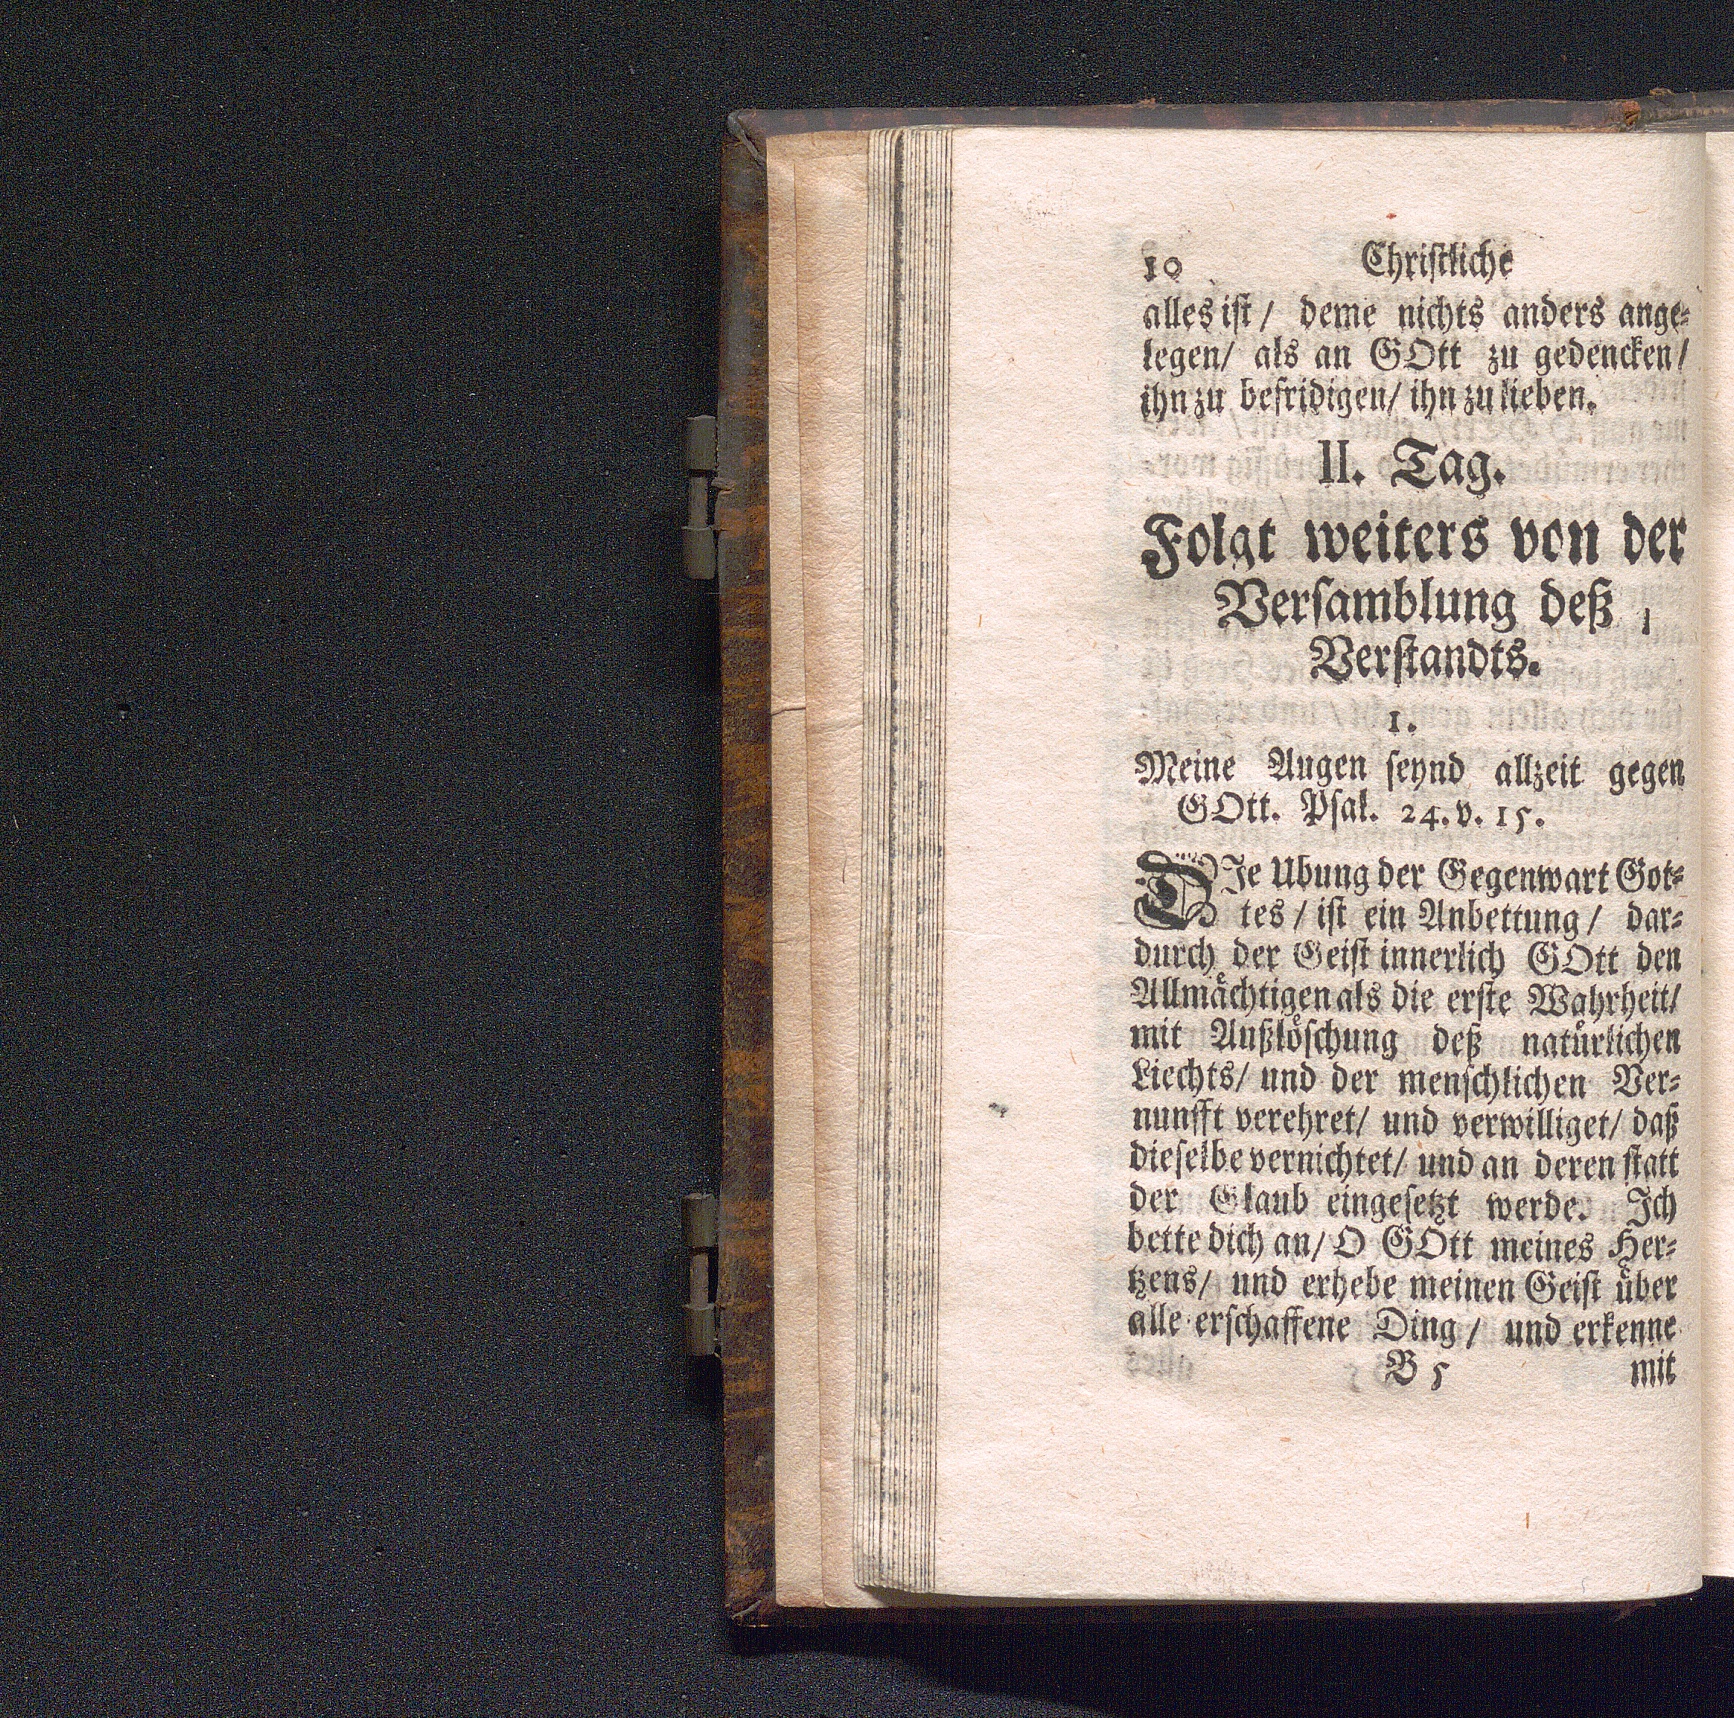 10 Christliche
alles ist / deme nichts anders ange⸗
legen/ als an GOtt zu gedencken/
ihn zu befridigen/ ihn zu lieben.
II. Tag.
Folgt weiters von der
Versamblung deß
Verstandts.
1.
Meine Augen seynd allzeit gegen
GOtt. Psal. 24. v. 15.
DIe Ubung der Gegenwart Got⸗
tes / ist ein Anbettung / dar⸗
durch der Geist innerlich GOtt den
Allmächtigen als die erste Wahrheit/
mit Außlöschung deß natürlichen
Liechts/ und der menschlichen Ver⸗
nunfft verehret/ und verwilliget/ daß
dieselbe vernichtet/ und an deren statt
der Glaub eingesetzt werde. Ich
bette dich an/ O GOtt meines Her⸗
tzens/ und erhebe meinen Geist über
alle erschaffene Ding / und erkenne
B 5 mit